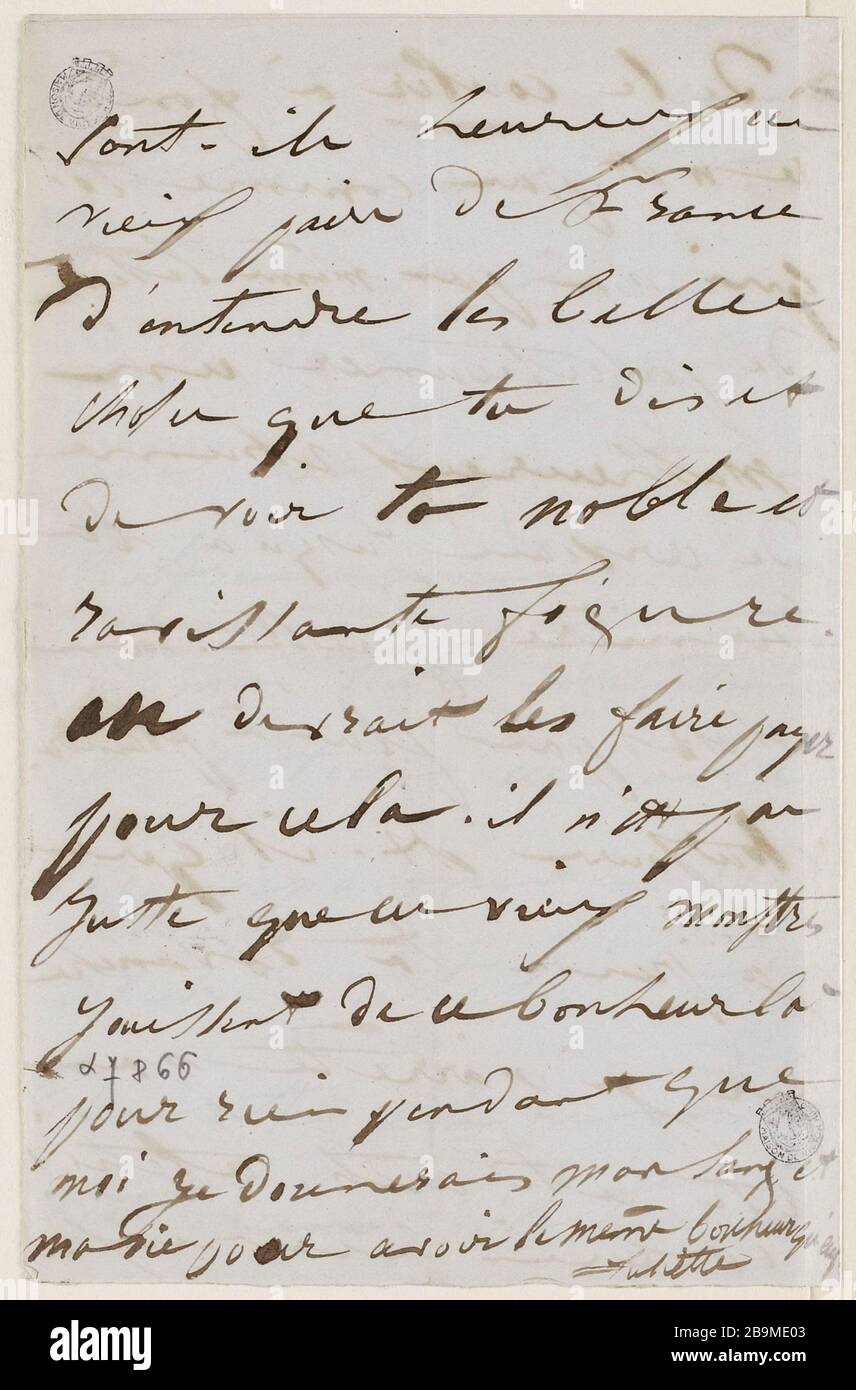 sont-ils heureux ces
vieux pairs de France
d'entendre les belles
choses que tu dis et
de voir ta noble et
ravissante figure.
on devrait les faire payer
pour cela. il n'est pas
juste que ces vieux monstres
jouissent de ce bonheur là
α 7866
pour rien pendant que
moi je donnerais mon sang et
ma vie pour avoir le même bonheur qu'eux
Juliette
alamy
Image ID: 2B9ME03
www.alamy.com